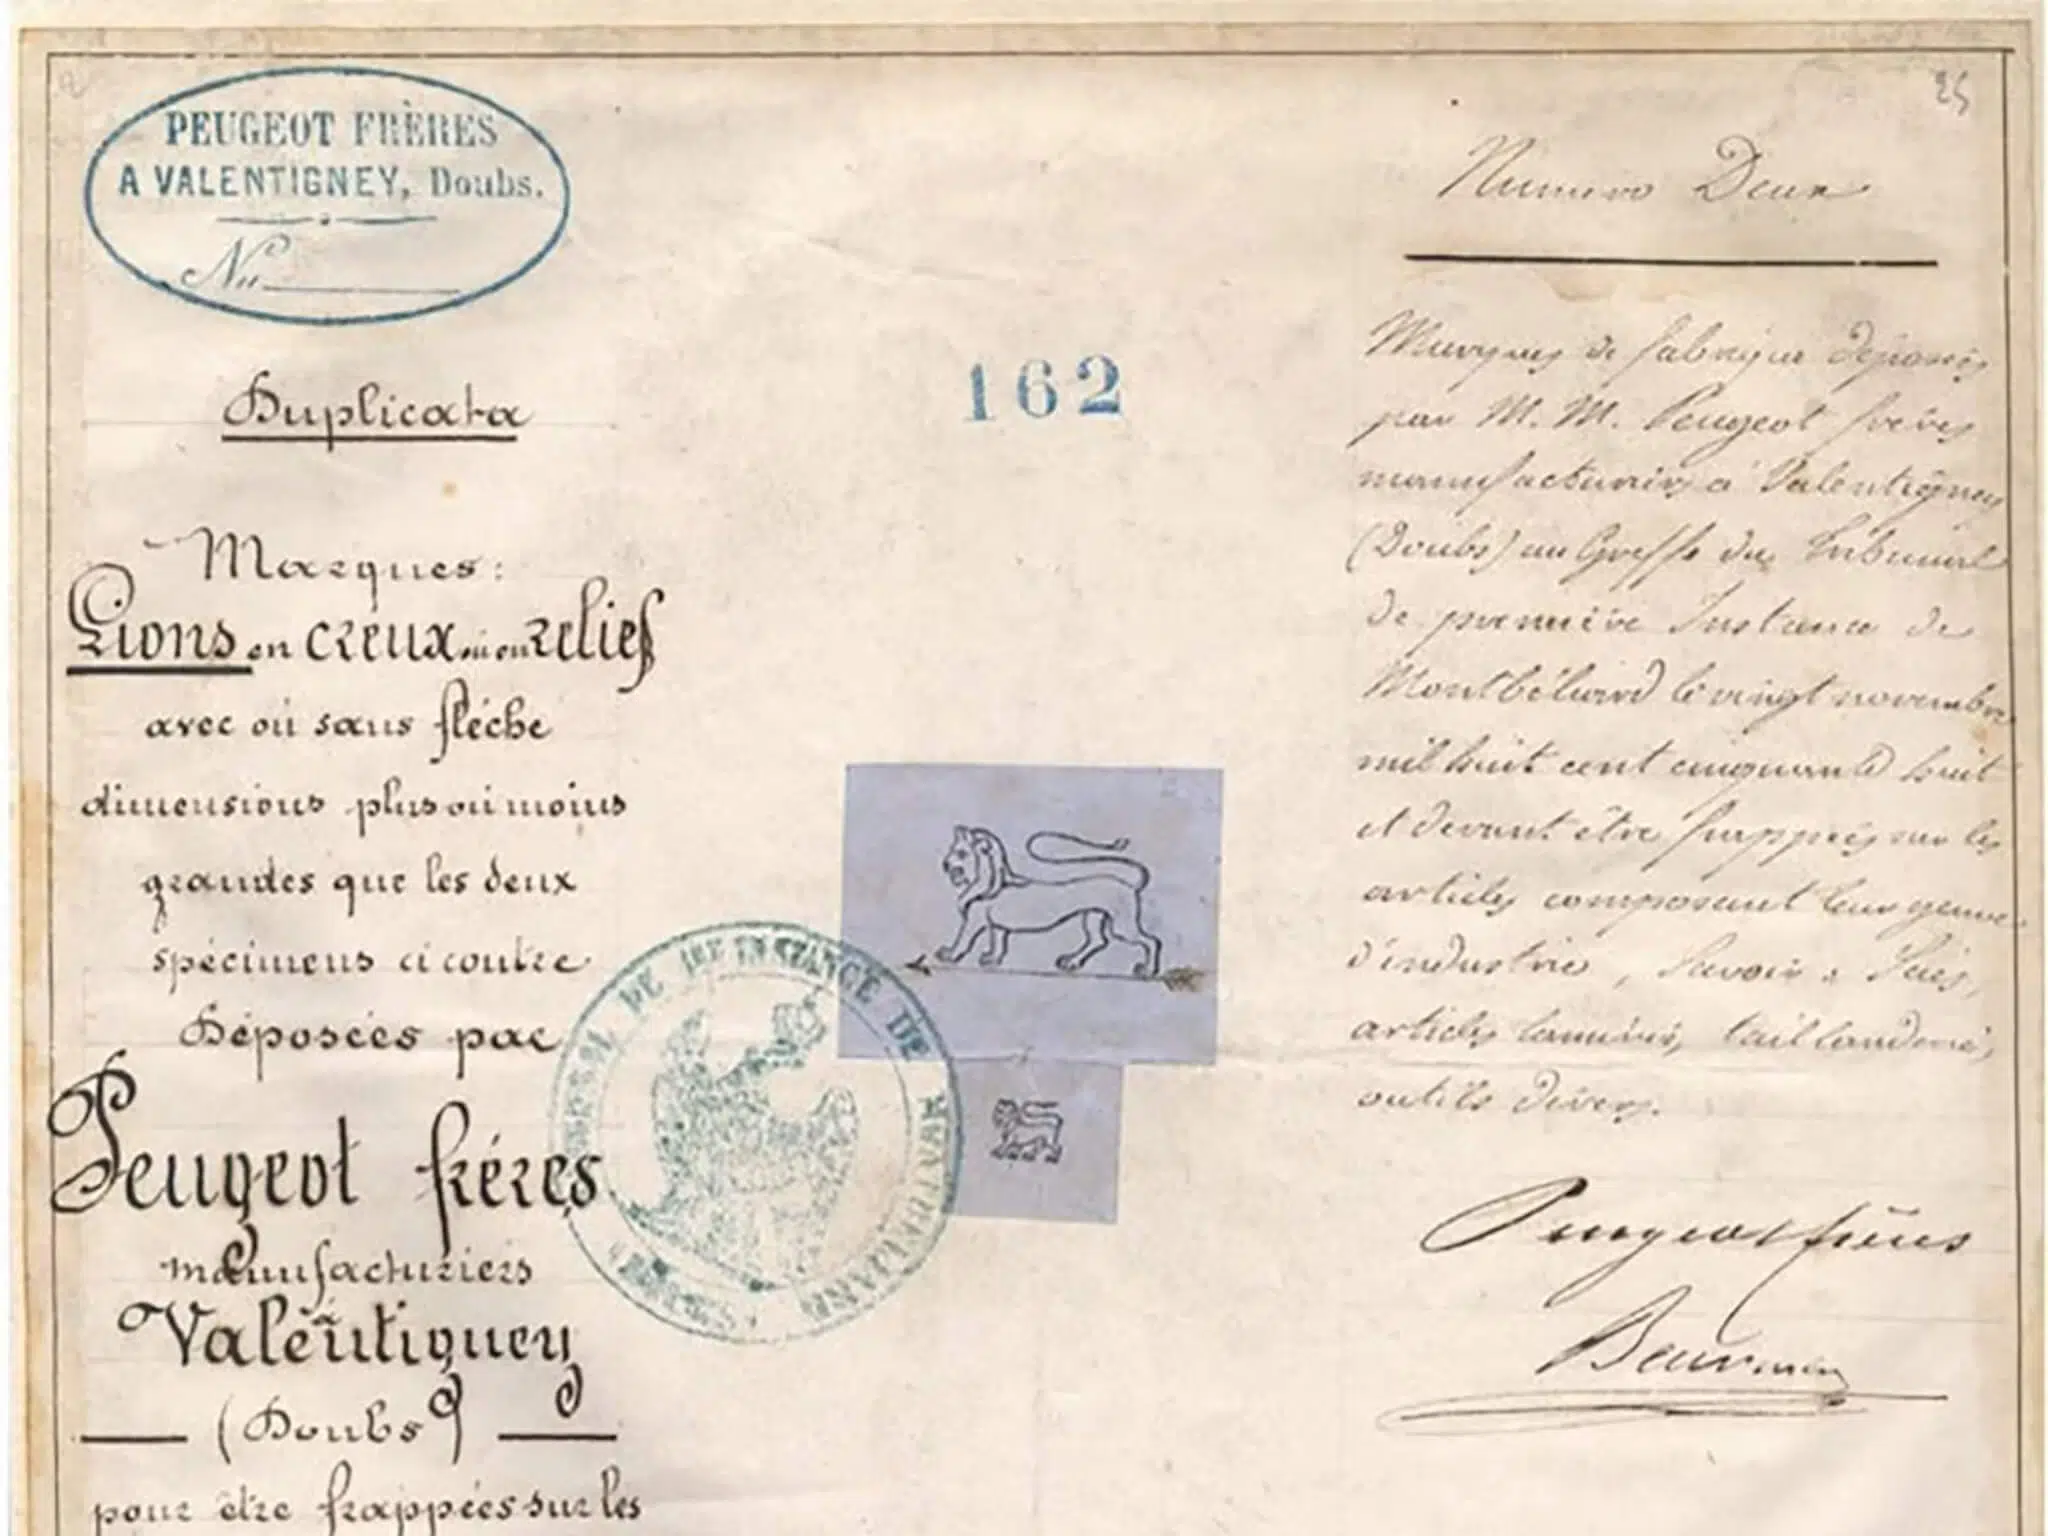 PEUGEOT FRÈRES
A VALENTIGNEY, Doubs.
No
Duplicata
Marques:
Lions en creux ou en relief
avec ou sans flèche
dimensions plus ou moins
grandes que les deux
spécimens ci contre
Déposées par
Peugeot frères
manufacturiers
à
Valentigney
(Doubs)
pour être frappées sur les
162
TRIBUNAL DE 1RE INSTANCE DE MONTBÉLIARD
25
Numéro Deux
Marques de fabrique déposées
par M. M. Peugeot frères
manufacturiers à Valentigney
(Doubs) au Greffe du Tribunal
de première Instance de
Montbéliard le vingt novembre
mil huit cent cinquante huit
et devant être frappées sur les
articles composant leur genre
d'industrie, Savoir : Scies,
articles laminés, taillanderie,
outils divers.
Peugeot frères